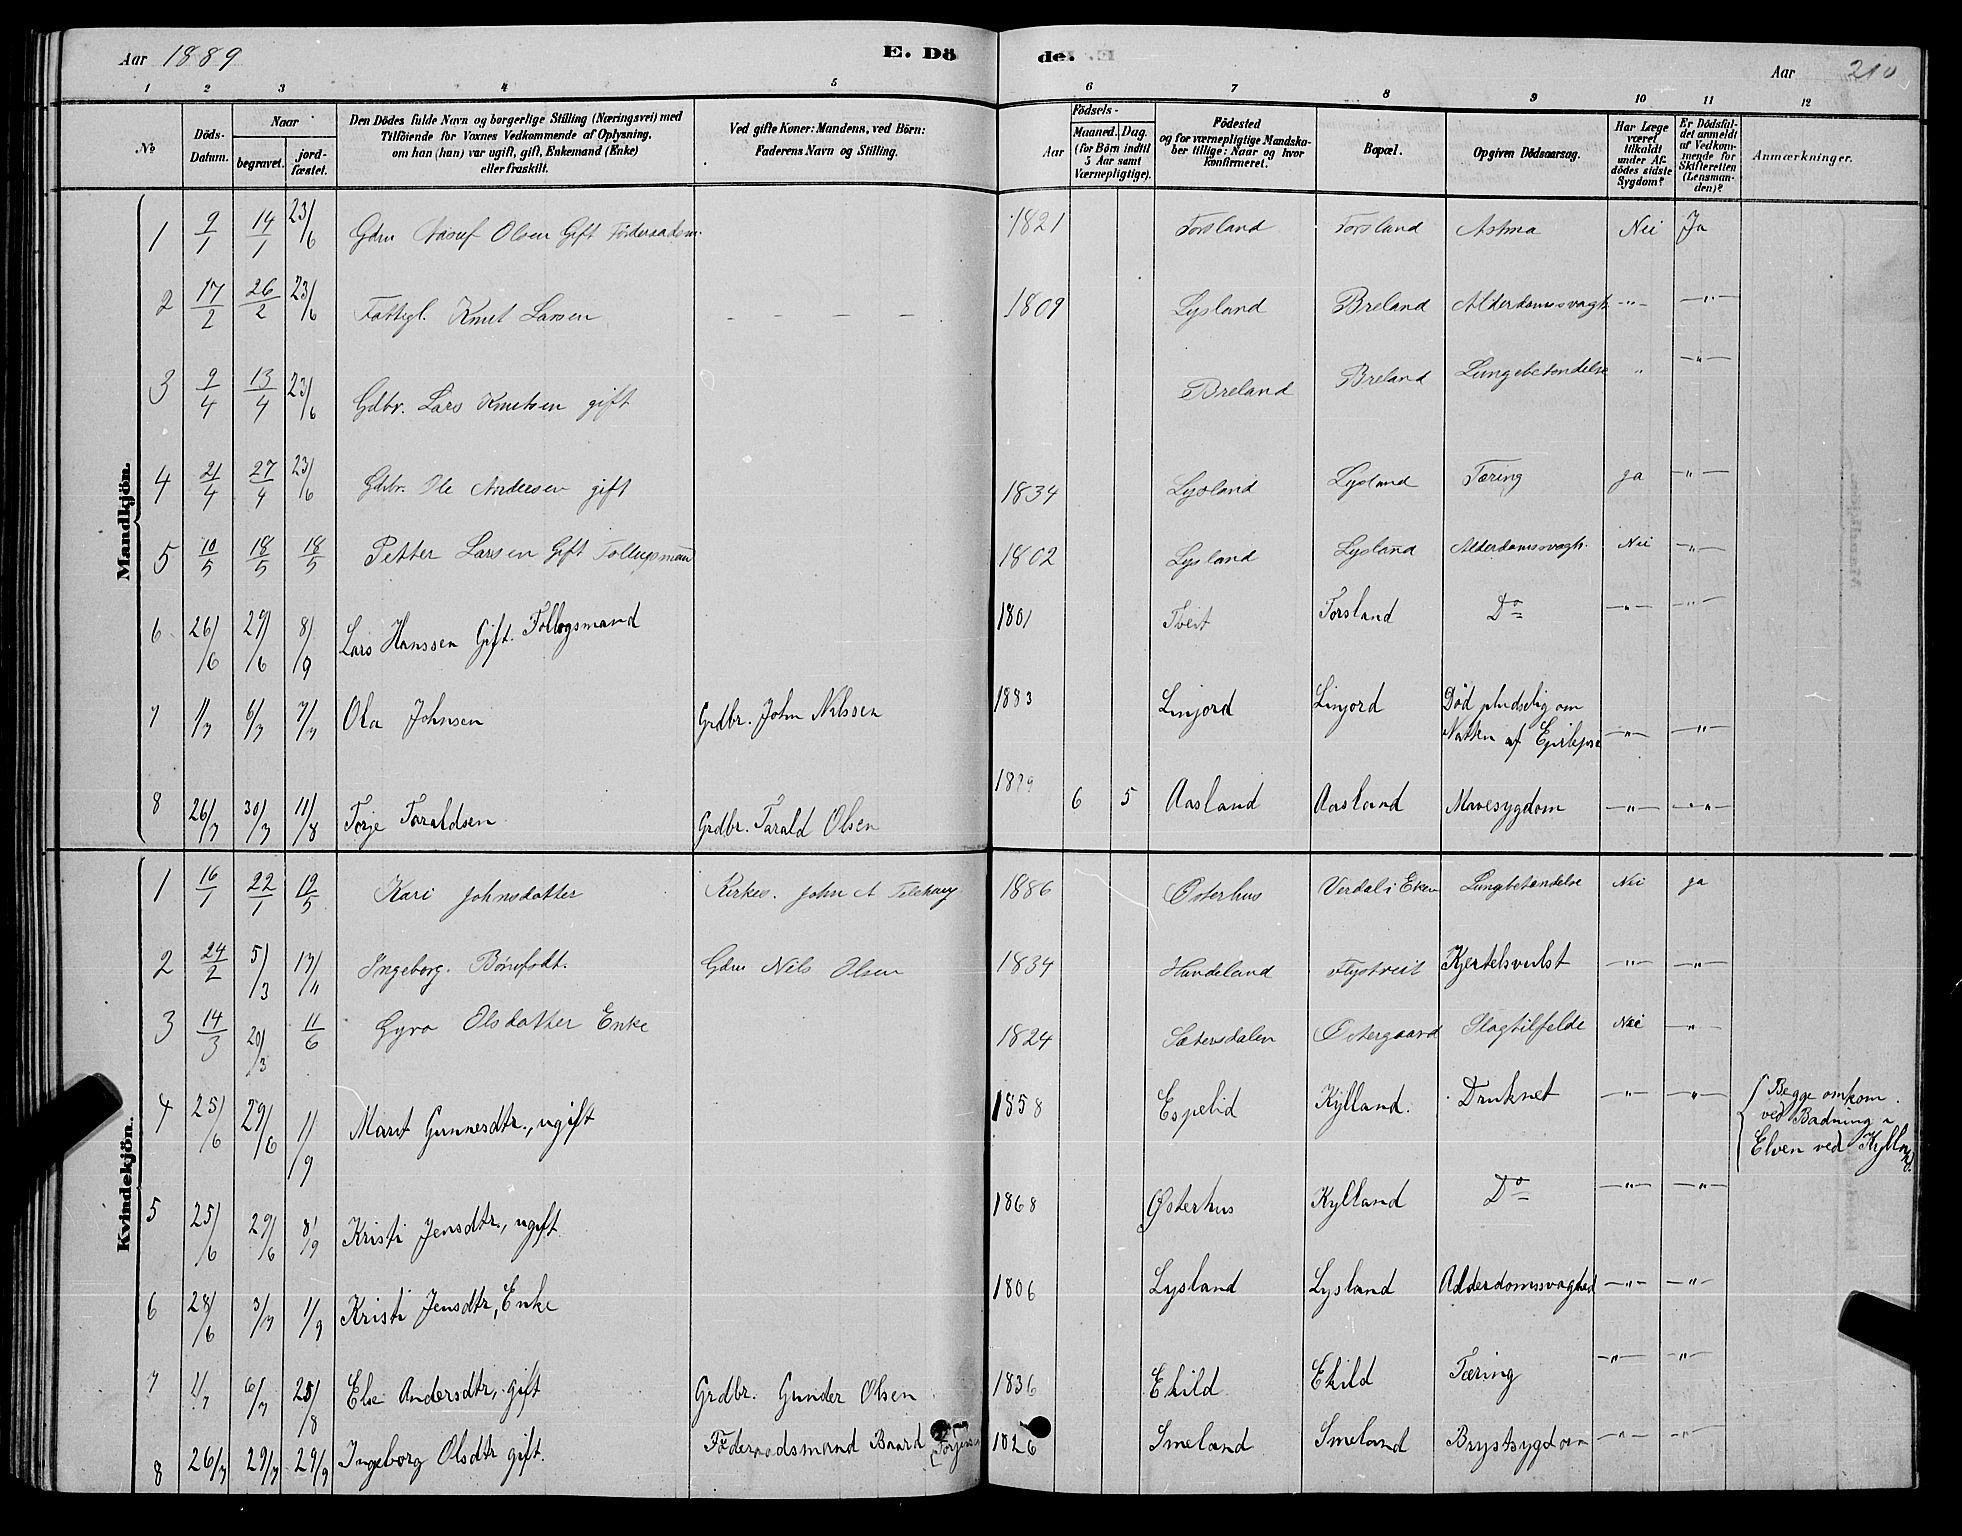 Aar 1889 E. Dö de. Aar 210
1 2 3 4 5 6 7 8 9 10 11 12
No Döds-Datum. Naar begravet. jord-fæstet. Den Dödes fulde Navn og borgerlige Stilling (Næringsvei) med Tilföiende for Voxnes Vedkommende af Oplysning, om han (hun) var ugift, gift, Enkemand (Enke) eller fraskilt. Ved gifte Koner: Mandens, ved Börn: Faderens Navn og Stilling. Födsels- Aar Maaned. Dag. (for Börn indtil 5 Aar samt Værnepligtige). Födested og for værnepligtige Mandskaber tillige: Naar og hvor Konfirmeret. Bopæl. Opgiven Dödsaarsag. Har Læge været tilkaldt under Afdödes sidste Sygdom? Er Dödsfaldet anmeldt af Vedkommende for Skifteretten (Lensmanden)? Anmærkninger.
Mandkjön.
1 9/1 14/1 23/6 Gdm Olsen Gift Föderaadsm. 1821 Forsland Forsland Astma Nei Ja
2 17/2 26/2 23/6 Fattigl. Knut Larsen - - - - 1809 Lysland Breland Alderdomssvagh. -"- -"-
3 9/4 13/4 23/6 Gdbr. Lars Knutsen gift Breland Breland Lungebetændelse " -"-
4 21/4 27/4 23/6 Gdbr. Ole Andersen gift 1834 Lysland Lysland Tæring ja -"-
5 10/5 18/5 18/5 Petter Larsen Gift Follugsmann 1802 Lysland Lysland Alderdomssvagh. Nei -"-
6 26/6 29/6 8/9 Lars Hanssen Gift. Follogsmand 1801 Tveit Forsland Do -"- -"-
7 1/7 6/7 7/7 Ola Johnsen Grdbr. John Nilssen 1883 Linjord Linjord Död pludselig om
Natten af Epilepsi -"- -"-
8 26/7 30/7 11/8 Terje Taraldsen Grdbr. Tarald Olsen 1879 6 5 Aasland Aasland Mavesygdom -"- -"-
Kvindekjön.
1 16/1 22/1 19/5 Kari Johnsdatter Kirkes. John A 1886 Österhus Verdal i Eken Lungebetændelse Nei ja
2 24/2 5/3 17/11 Ingeborg. Gdm Nils Olsen 1834 Handeland Flystveit Kjertelsvulst -"- -"-
3 14/3 20/3 11/6 Gyro Olsdatter Enke 1824 Sætersdalen Östergaard Slagtilfelde Nei -"-
4 25/6 29/6 1/9 Marit Gunnersdtr., ugift 1858 Espelid Kylland. Druknet -"- -"- Begge omkom
ved Badning i
Elven ved Kylland.
5 25/6 29/6 8/9 Kristi Jensdtr., ugift 1868 Østerhus Kylland Do -"- -"-
6 28/6 3/7 1/9 Kristi Jensdtr, Enke 1806 Lysland Lysland Alderdomssvaghed -"- -"-
7 1/7 6/7 25/8 Else Andersdtr, gift Grdbr. Gunder Olsen 1836 Ekild Ekild Tæring -"- -"-
8 26/7 29/7 29/9 Ingeborg Olsdtr gift. Föderaadsmand Baard Torjersen 1826 Smeland Smeland Brystsygdom -"- -"-